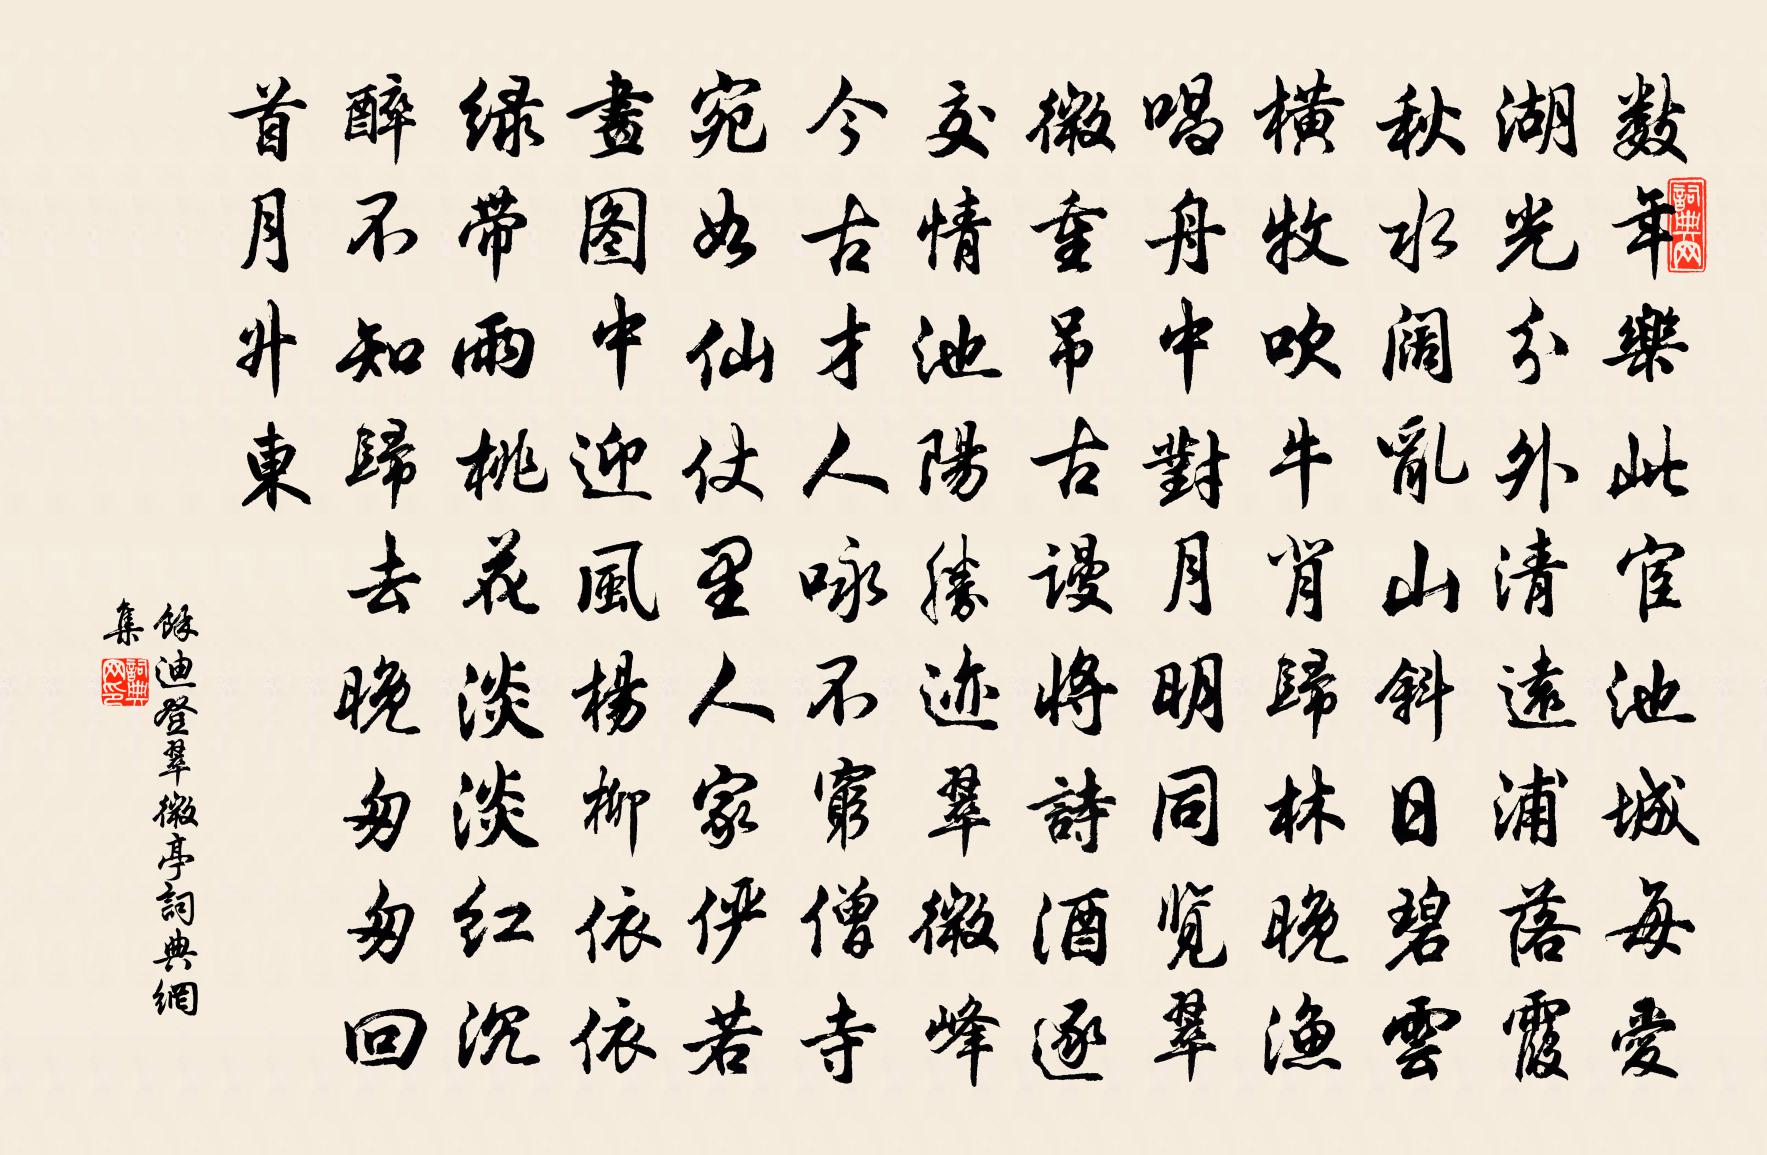 數年樂此宦池城每愛
湖光分外清遠浦落霞
秋水闊亂山斜日碧雲
橫牧吹牛背歸林晚漁
唱舟中對月明同覽翠
微重吊古謾將詩酒逐
交情池陽勝迹翠微峰
今古才人咏不窮僧寺
宛如仙仗里人家俨若
畫图中迎風楊柳依依
绿帶雨桃花淡淡红沉
醉不知歸去晚匆匆回
首月升東
餘迪登翠微亭詞典網
集
詞典网
詞典网印